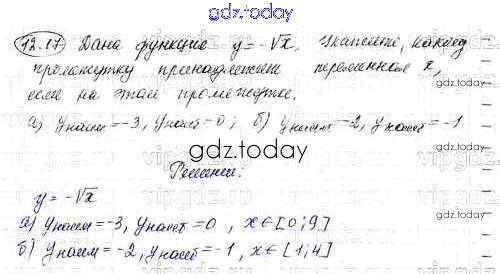 gdz.today
12.17 Дана функция y = -√x. Укажите, какому
промежутку принадлежит переменная x,
если на этом промежутке:
а) yнаим = -3, yнаиб = 0; б) yнаим = -2, yнаиб = -1
gdz.today
Решение:
y = -√x
а) yнаим = -3, yнаиб = 0, x∈[0;9]
б) yнаим = -2, yнаиб = -1, x∈[1;4]
gdz.today